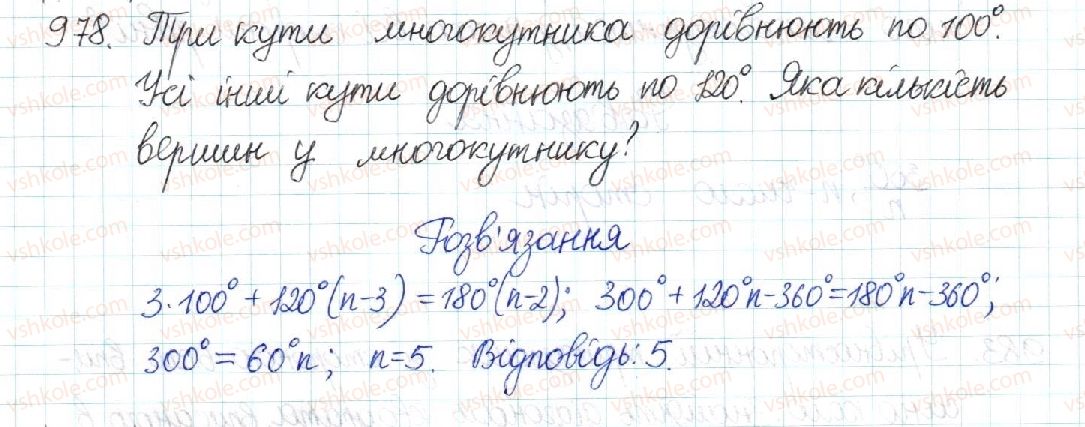 978. Три кути многокутника дорівнюють по 100°.
Усі інші кути дорівнюють по 120°. Яка кількість
вершин у многокутнику?
Розв'язання
3·100° + 120°(n-3) = 180°(n-2); 300° + 120°n - 360° = 180°n - 360°;
300° = 60°n; n=5. Відповідь: 5.